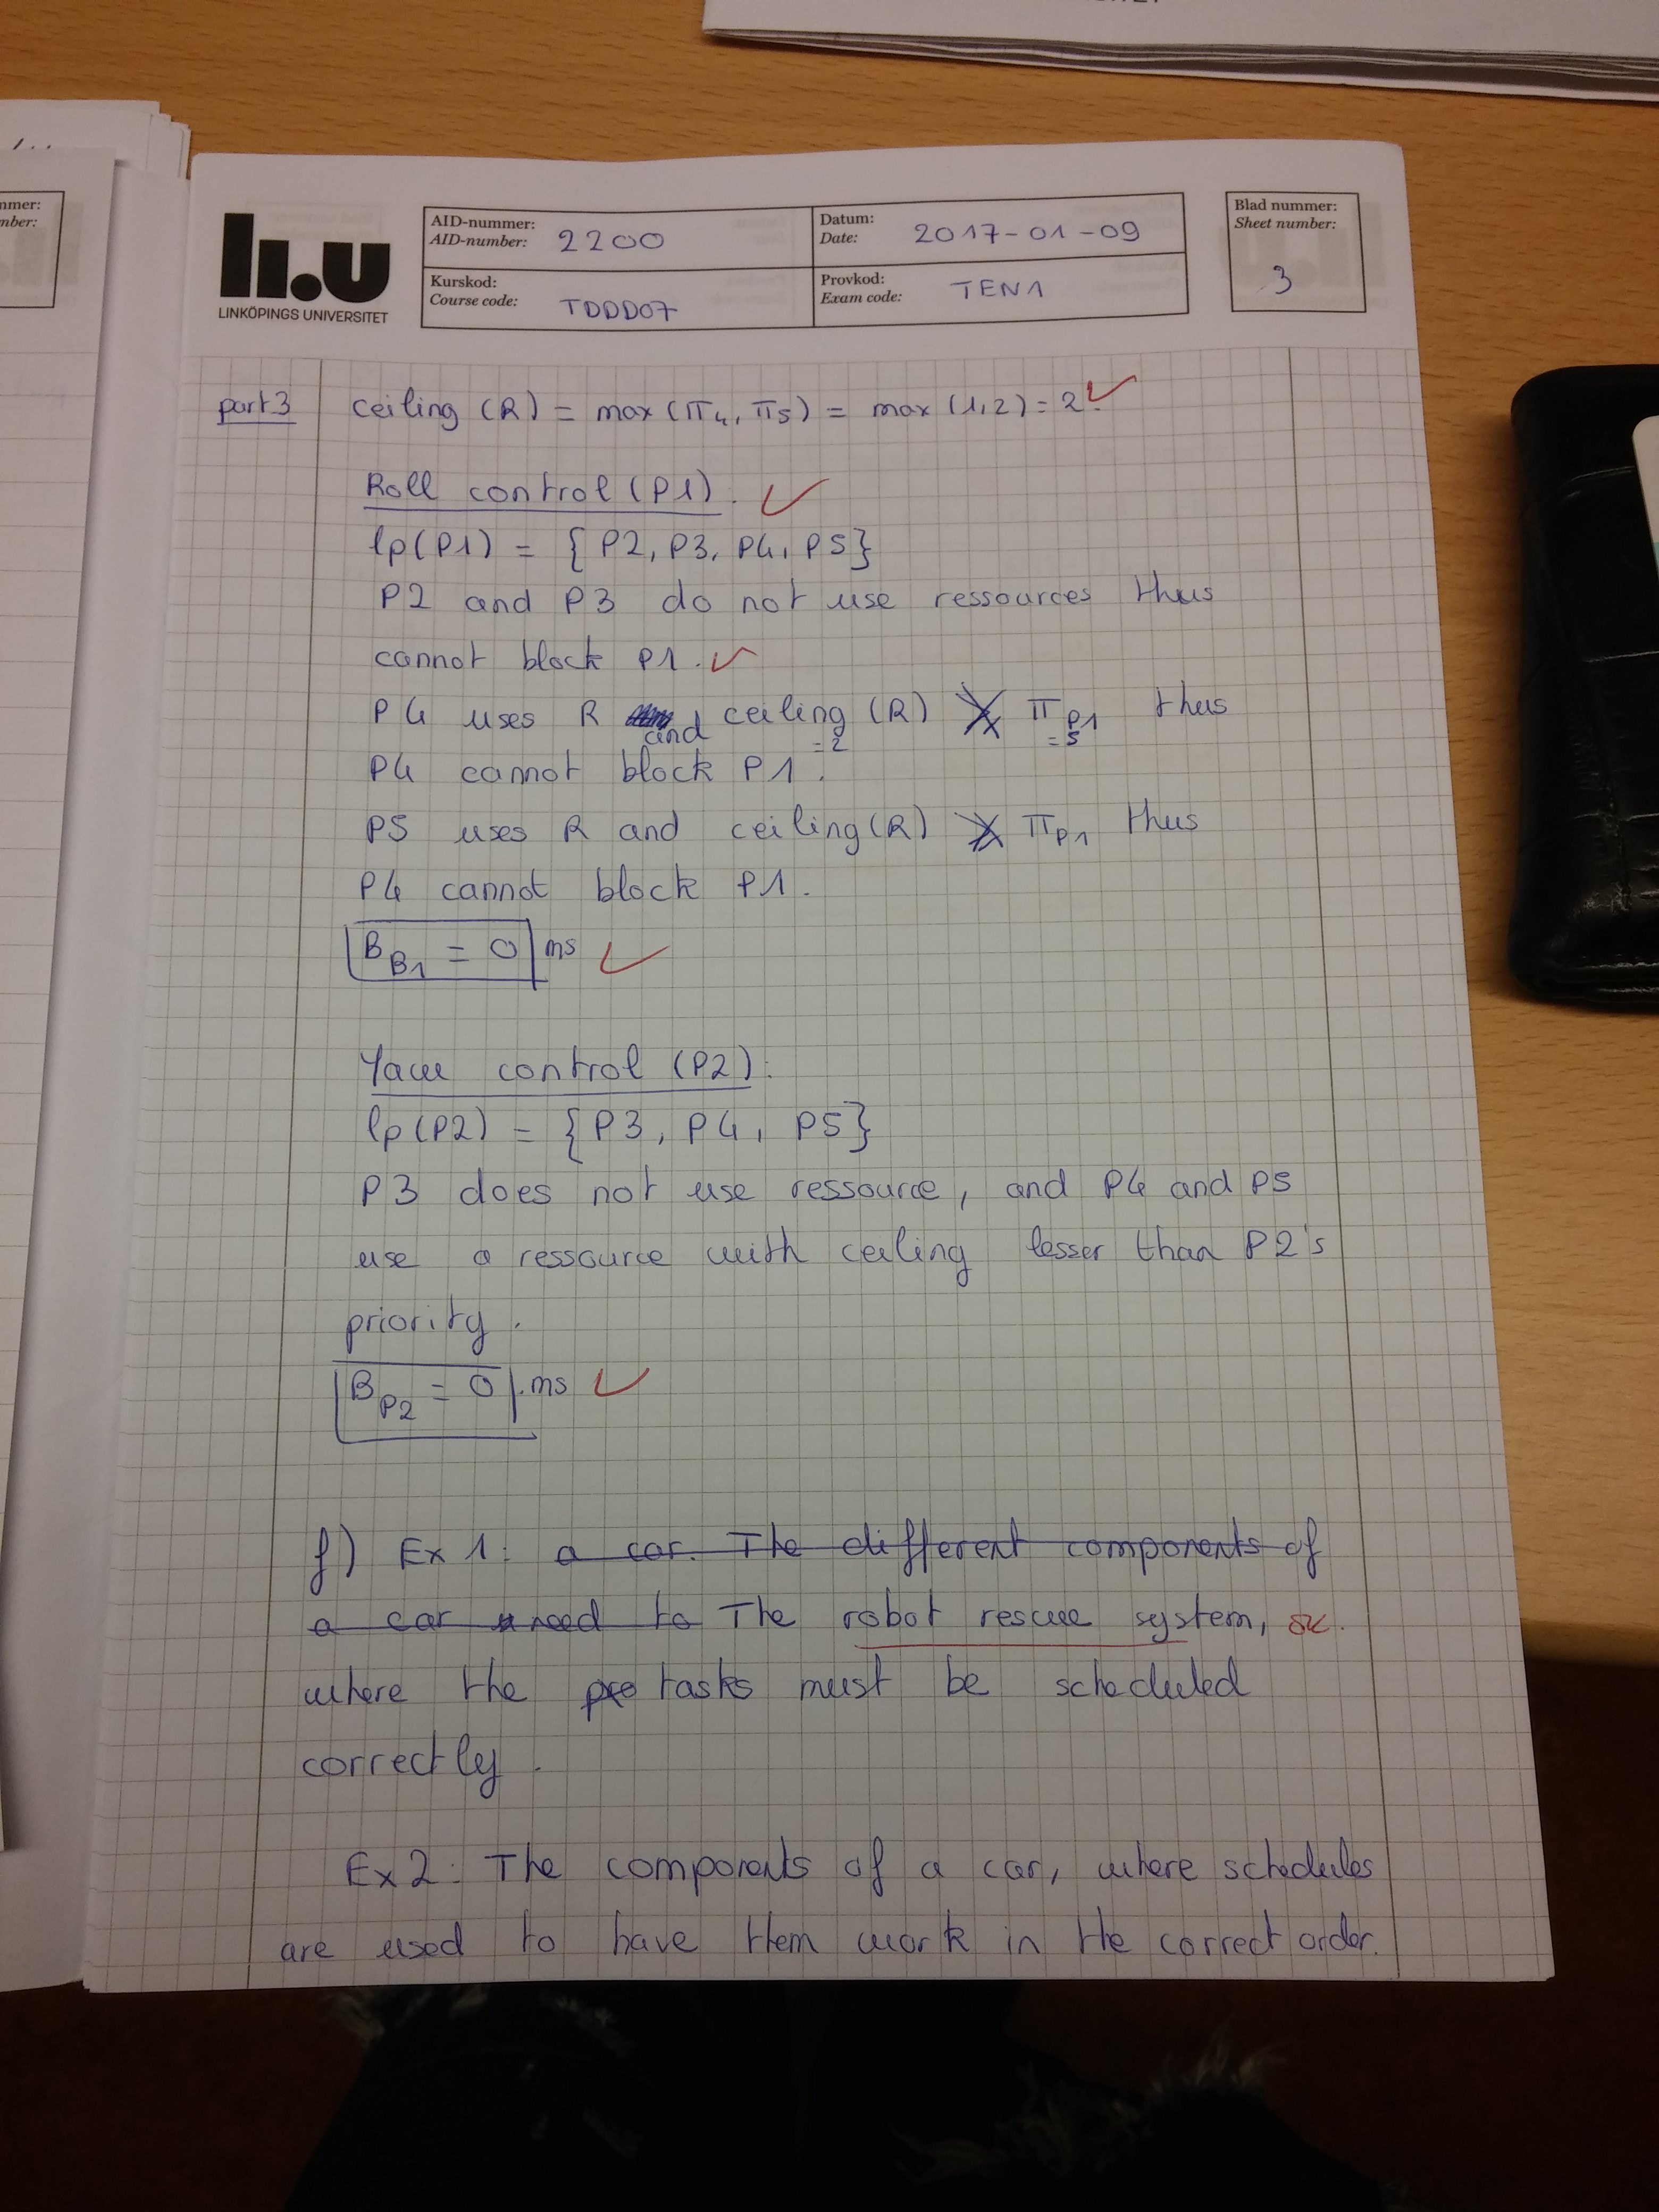 mmer:
mber:
li.u
LINKÖPINGS UNIVERSITET
AID-nummer:
AID-number: 2200
Datum:
Date: 2017-01-09
Blad nummer:
Sheet number:
3
Kurskod:
Course code: TDDD07
Provkod:
Exam code: TEN1
part 3 ceiling (R) = max (π4, π5) = max (1,2) = 2.
Roll control (P1).
lp(P1) = {P2, P3, P4, P5}
P2 and P3 do not use ressources thus
cannot block P1.
P4 uses R and ceiling (R) ≯ πP1 thus
=2 =5
P4 cannot block P1.
P5 uses R and ceiling (R) ≯ πP1 thus
P4 cannot block P1.
BB1 = 0 ms
Yaw control (P2):
lp(P2) = {P3, P4, P5}
P3 does not use ressource, and P4 and P5
use a ressource with ceiling lesser than P2's
priority.
BP2 = 0 ms
f) Ex 1: a car. The different components of
a car need to The robot rescue system, ok.
where the pro tasks must be scheduled
correctly.
Ex 2: The components of a car, where schedules
are used to have them work in the correct order.